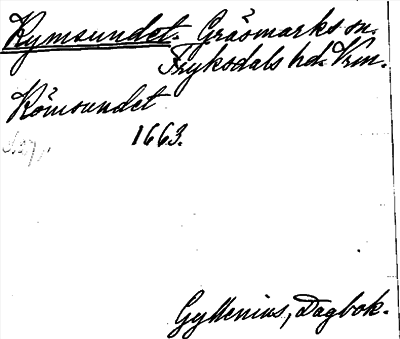 Rymsundet. Gräsmarks sn.
Fryksdals hd. Vrm.
Römsundet
1663.
Gyllenius, Dagbok.